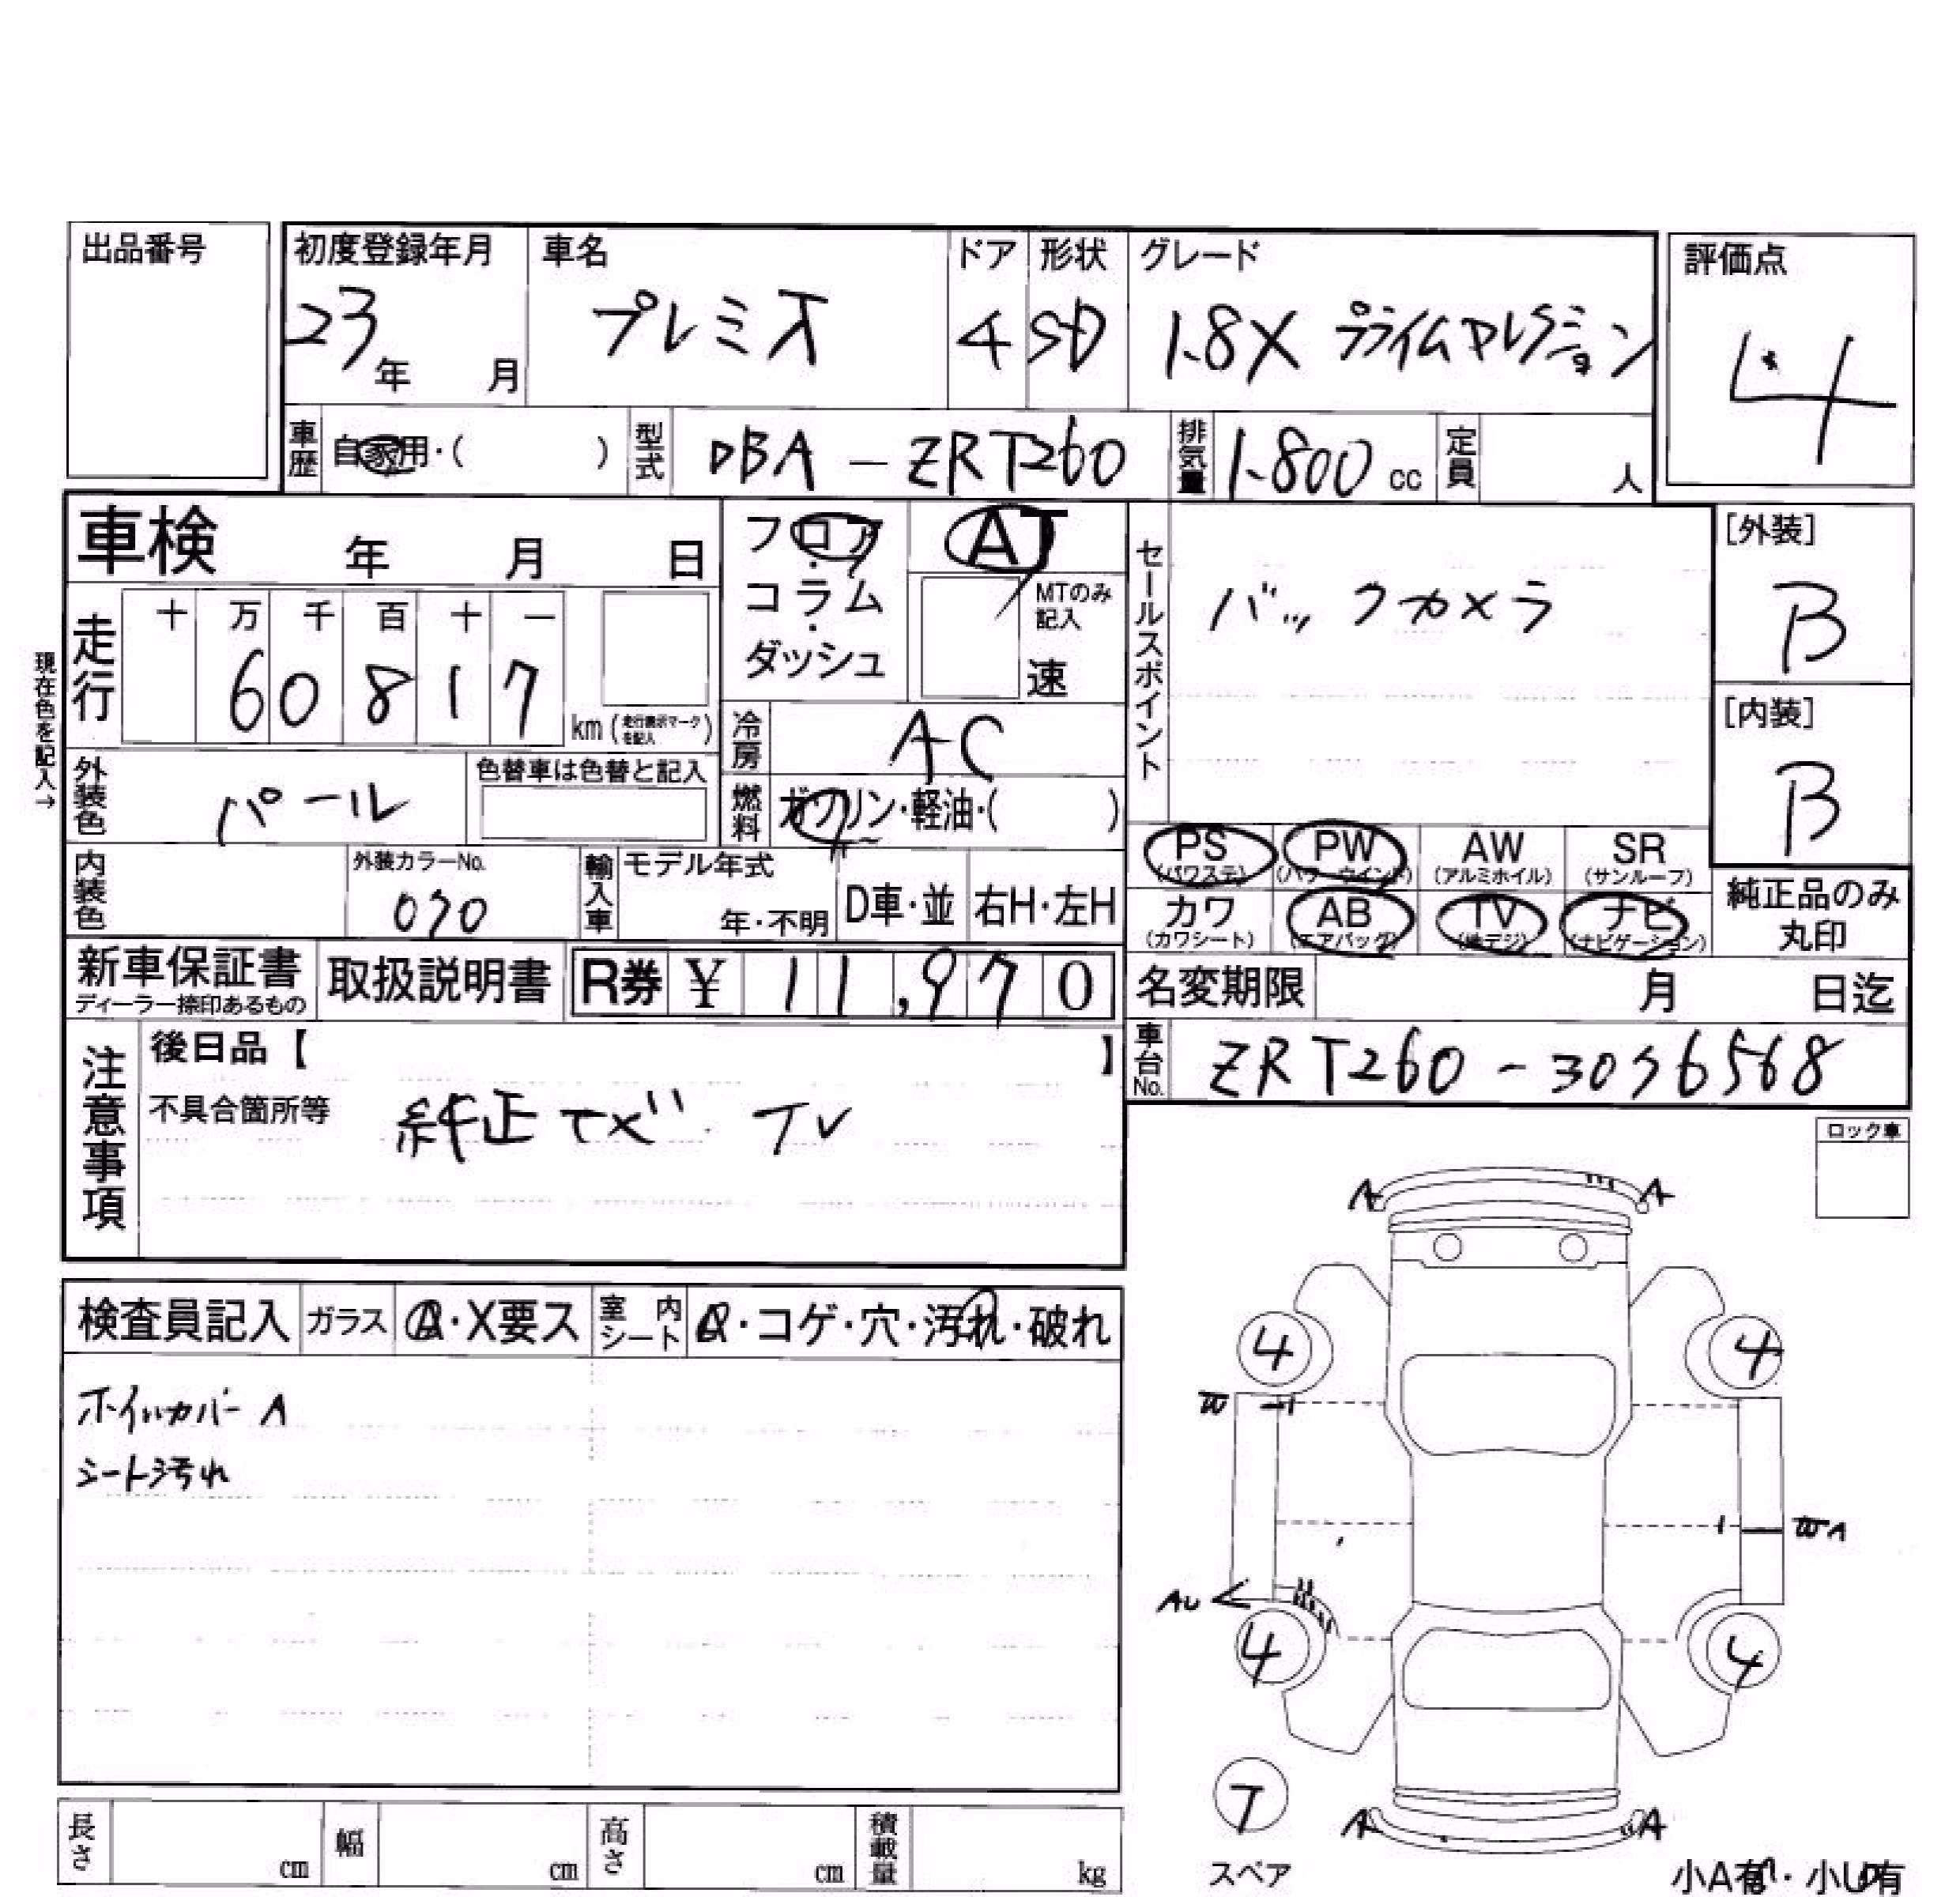 出品番号
初度登録年月 車名 ドア 形状 グレード 評価点
23年 月 プレミオ 4 SD 1.8X プライムセレクション 4
車歴 自家用・( ) 型式 DBA-ZRT260 排気量 1.800 cc 定員 人
車検 年 月 日
フロア・コラム・ダッシュ
AT
MTのみ記入
速
セールスポイント
バックカメラ
[外装]
B
[内装]
B
現在色を記入→
走行 十 万 千 百 十 一
6 0 8 1 7 km (走行表示マークを記入)
冷房 AC
外装色 パール 色替車は色替と記入
燃料 ガソリン・軽油・( )
PS (パワステ) PW (パワーウインド) AW (アルミホイル) SR (サンルーフ)
カワ (カワシート) AB (エアバッグ) TV (地デジ) ナビ (ナビゲーション)
純正品のみ丸印
内装色 外装カラーNo. 070 輸入車 モデル年式 年・不明 D車・並 右H・左H
新車保証書 ディーラー捺印あるもの 取扱説明書 R券 ¥ 11,970
名変期限 月 日迄
車台No. ZRT260-3056568
注意事項
後日品【 】
不具合箇所等 純正ナビ TV
ロック車
検査員記入 ガラス A・X要ス 室内シート ・コゲ・穴・汚れ・破れ
ホイルカバー A
シート汚れ
A A
4 4
W
WA
AU
4 4
T
スペア
A A
小A有・小U有
長さ cm 幅 cm 高さ cm 積載量 kg